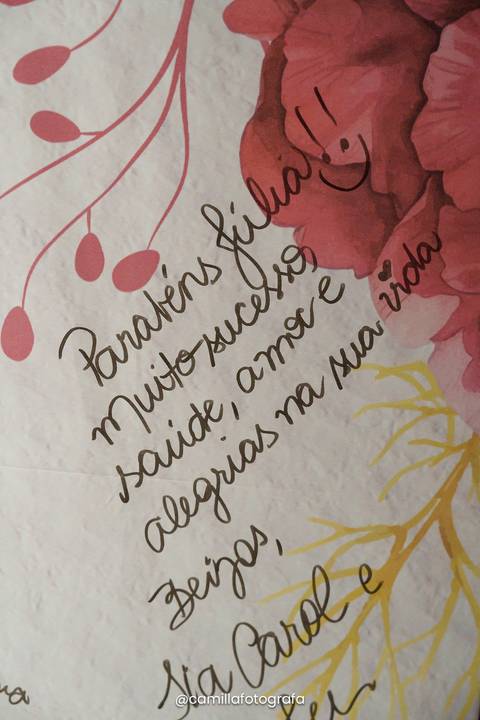 Parabéns Júlia!! :)
Muito sucesso,
saúde, amor e
alegrias na sua vida
Beijos,
Tia Carol e
@camillafotografa